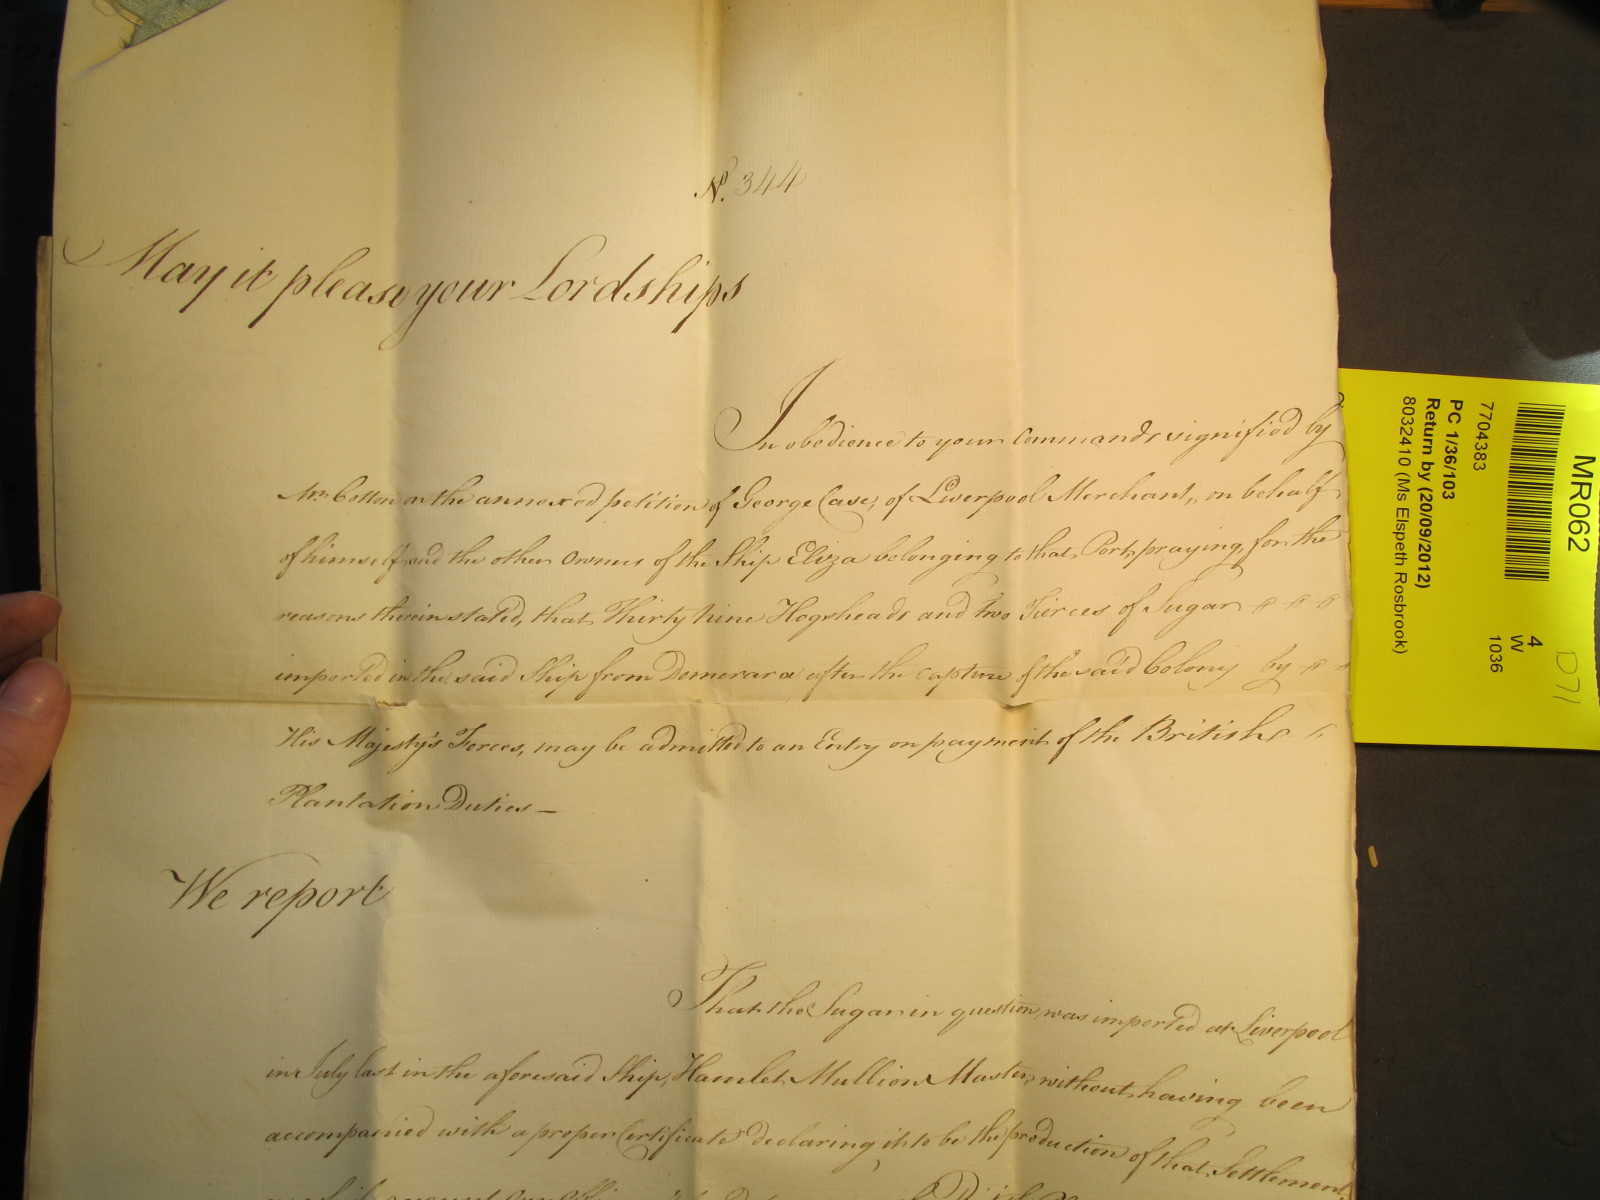 No. 344
May it please your Lordships
In obedience to your Commands signified by
Mr. Cotton on the annexed petition of George Case, of Liverpool Merchant, on behalf
of himself and the other Owners of the Ship Eliza belonging to that Port, praying, for the
reasons therein stated, that Thirty nine Hogsheads and two Tierces of Sugar
imported in the said Ship from Demerara after the capture of the said Colony by
His Majesty's Forces, may be admitted to an Entry on payment of the British
Plantation Duties —
We report
That the Sugar in question, was imported at Liverpool
in July last in the aforesaid Ship, Hamlet Mullion Master, without having been
accompanied with a proper Certificate declaring it to be the production of that Settlement,
MR062
7704383
PC 1/36/103
Return by (20/09/2012)
8032410 (Ms Elspeth Rosbrook)
4
W
1036
D71